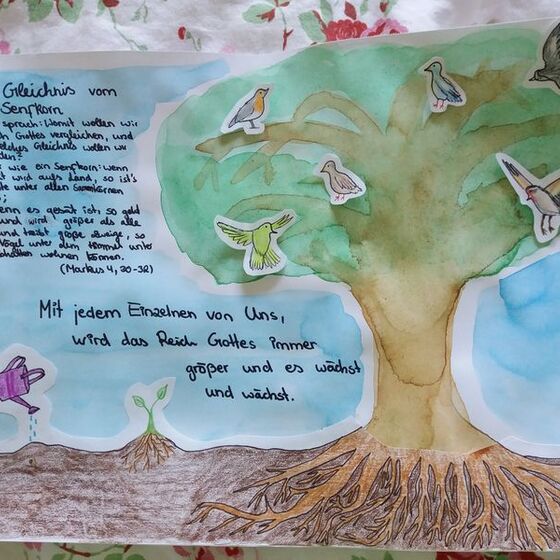 Gleichnis vom
Senfkorn
sprach: Womit wollen wir
Gottes vergleichen, und
Gleichnis wollen wir
wie ein Senfkorn: wenn
wird aufs Land, so ist's
unter allen Samenkörnern
wenn es gesät ist, so geht
und wird größer als alle
und treibt große Zweige, so
Vögel unter dem Himmel unter
wohnen können.
(Markus 4, 30-32)
Mit jedem Einzelnen von Uns,
wird das Reich Gottes immer
größer und es wächst
und wächst.